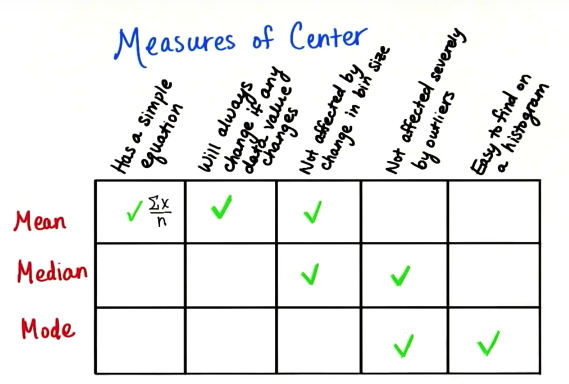 Measures of Center
Has a simple
equation
Will always
change if any
data value
changes
Not affected by
change in bin size
Not affected severely
by outliers
Easy to find on
a histogram
Mean ✓ Σx/n ✓ ✓
Median ✓ ✓
Mode ✓ ✓